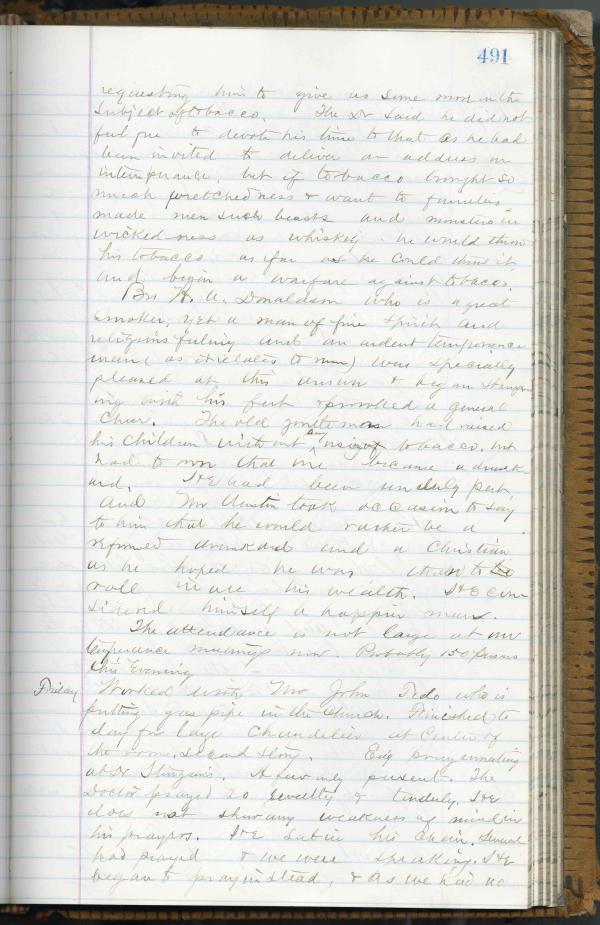 491
requesting him to give us some more on the
Subject of tobacco. The Dr said he did not
feel free to devote his time to that as he had
been invited to deliver an address on
intemperance, but if tobacco brought so
much wretchedness & want to families
made men such beasts and monsters in
wickedness as whiskey he would throw
his tobacco as far as he could throw it,
and begin a warfare against tobacco.
Bro A. Donaldson who is a great
smoker, yet a man of fine spirit and
religious feeling and an ardent temperance
man (as it relates to rum) was specially
pleased at this answer & began
ing with his feet & provoked a general
Cheer. The old gentleman had raised
his children without any using of tobacco, but
had to own that one became a drunk
ard. He had been unduly pert,
and Mr Austin took occasion to say
to him that he would rather be a
reformed drunkard and a Christian
as he hoped he was than to
roll in all his wealth. & con-
sidered himself a happier man.
The attendance is not large at our
temperance meetings now. Probably 150 persons
this Evening
Friday Worked with Mr John who is
putting gas pipe in the church. Finished to
day for large Chandelier at Center of
the room, second story. Evg prayermeeting
at Dr A few only present. The
Doctor prayed so sweetly & tenderly. He
does not show any weakness of mind in
his prayers. He sat in his chair. Several
had prayed & we were speaking. He
began to pray instead, & as we had no